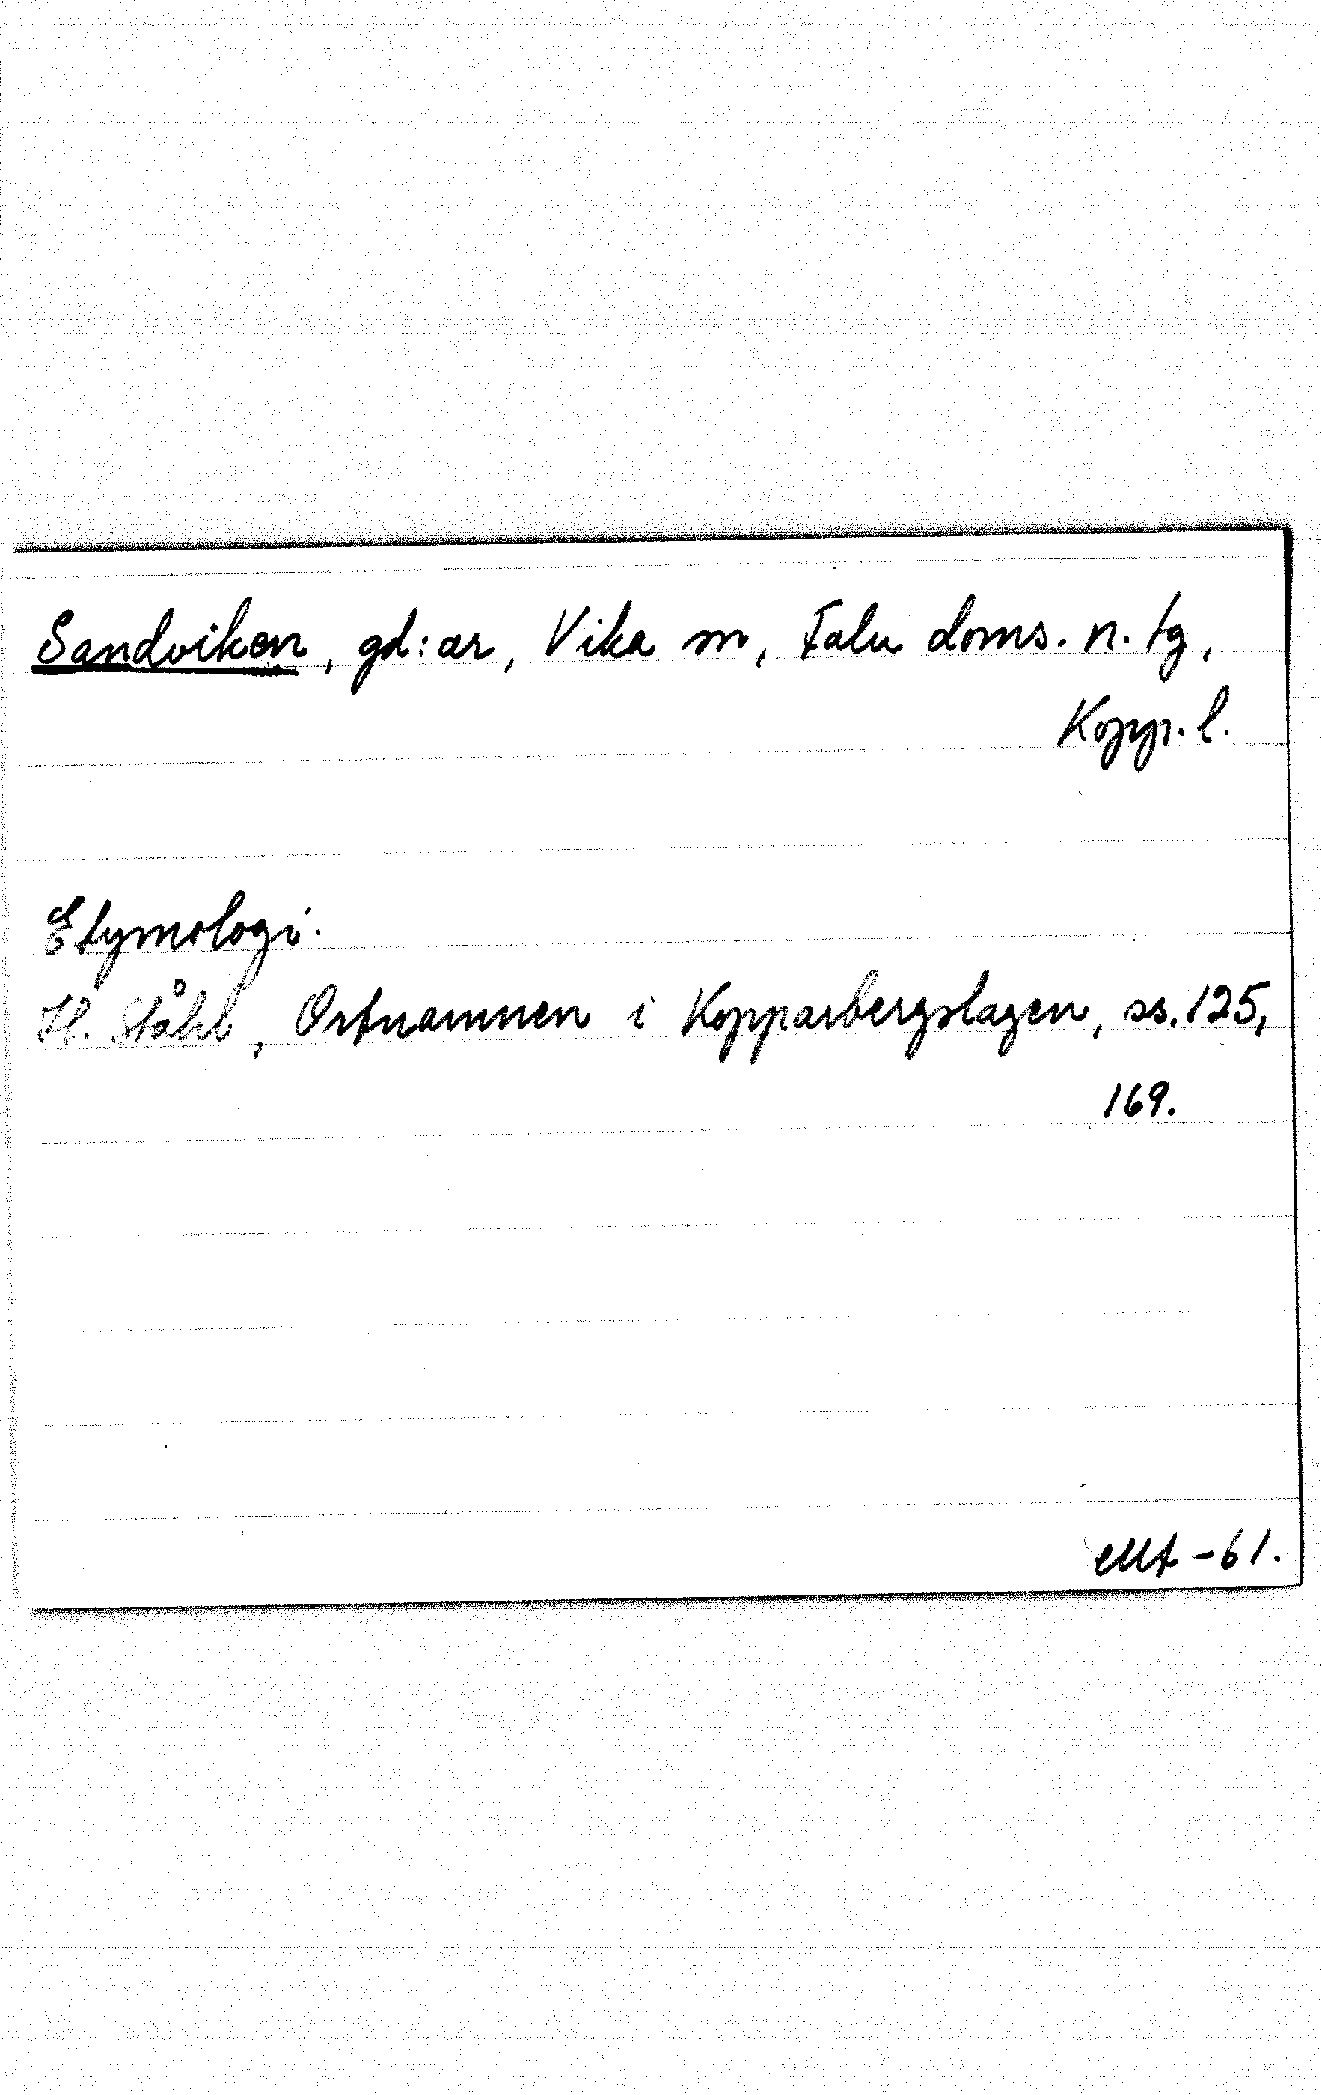 Sandviken, gd:ar, Vika sn, Falu doms. n. tg,
Kopp. l.
Etymologi.
H. Ståhl, Ortnamnen i Kopparbergslagen, ss. 125,
169.
-61.